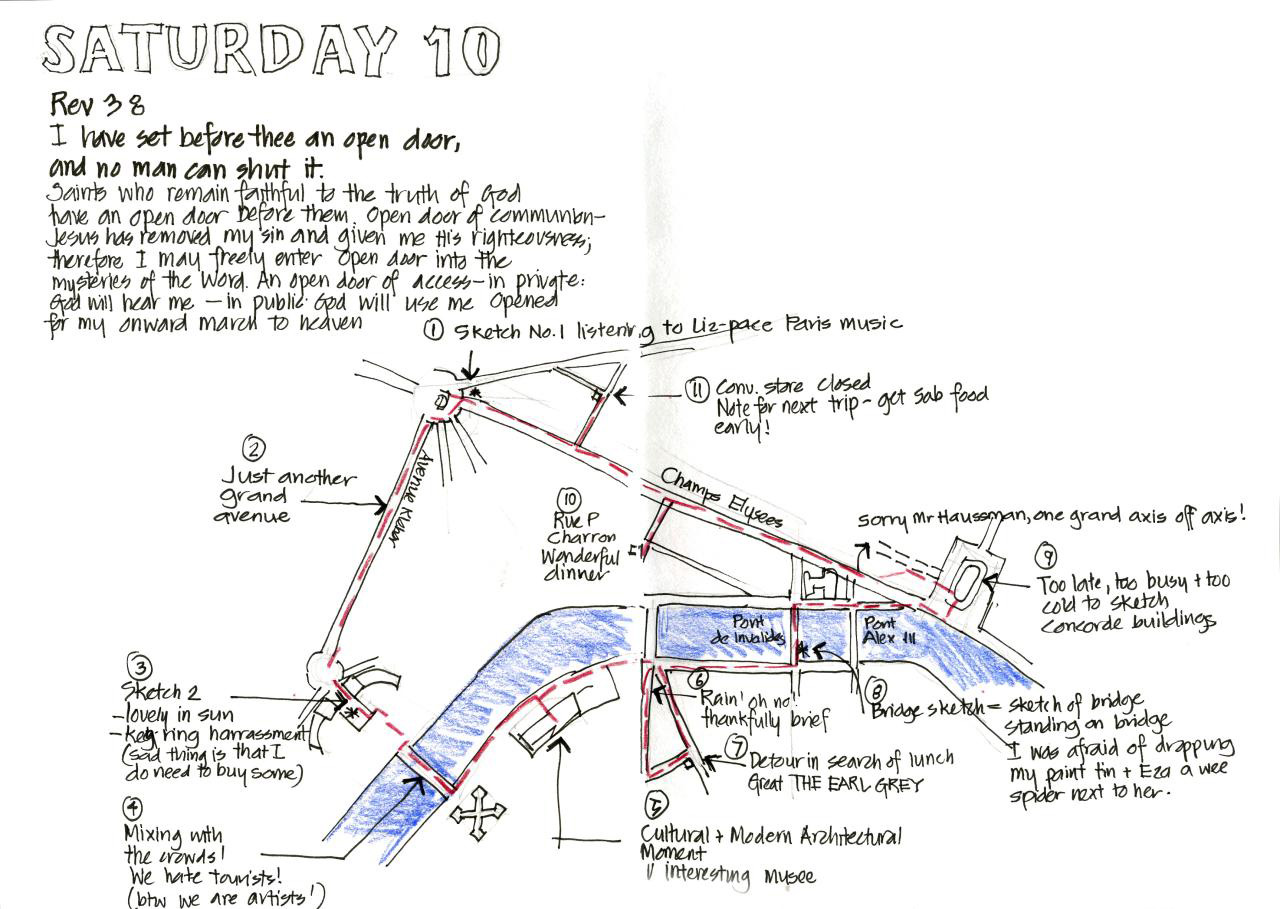 SATURDAY 10
Rev 3 8
I have set before thee an open door,
and no man can shut it.
Saints who remain faithful to the truth of God
have an open door before them. Open door of communion-
Jesus has removed my sin and given me His righteousness;
therefore I may freely enter Open door into the
mysteries of the Word. An open door of access-in private:
God will hear me - in public God will use me Opened
for my onward march to heaven
① Sketch No.1 listening to Liz-pace Paris music
⑪ Conv. store closed
Note for next trip - get Sab food
early!
②
Just another
grand
avenue
Avenue Kleber
Champs Elysees
⑩
Rue P
Charron
Wonderful
dinner
Sorry Mr Haussman, one grand axis off axis!
⑨
Too late, too busy + too
cold to sketch
concorde buildings
Pont
de Invalides
Pont
Alex III
③
Sketch 2
-lovely in sun
-key ring harrassment
(sad thing is that I
do need to buy some)
⑥
Rain! oh no!
thankfully brief
⑦ Detour in search of lunch
Great THE EARL GREY
⑧
Bridge sketch = sketch of bridge
standing on bridge
I was afraid of dropping
my paint tin + Eza a wee
spider next to her.
④
Mixing with
the crowds!
We hate tourists!
(btw we are artists!)
⑤
Cultural + Modern Architectural
Moment
V interesting Musee